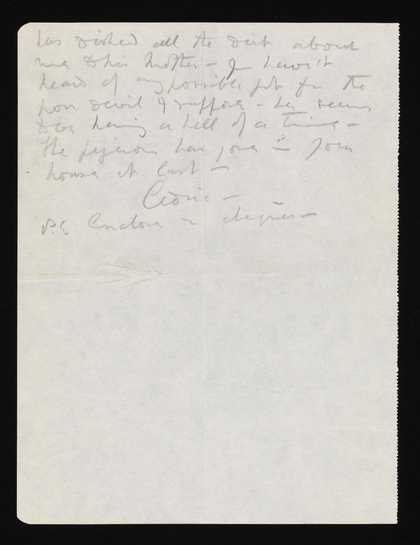 has dished all the dirt about
me to his mother – You haven't
heard of any possible job for the
poor devil I suppose – he seems
to be having a hell of a time –
The have gone in
house at last –
Cedric –
P.S. Enclose a cheque –